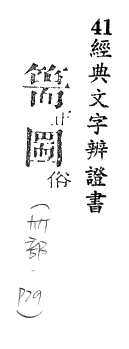 41經典文字辨證書
篅正
圌俗
(竹部.P79)